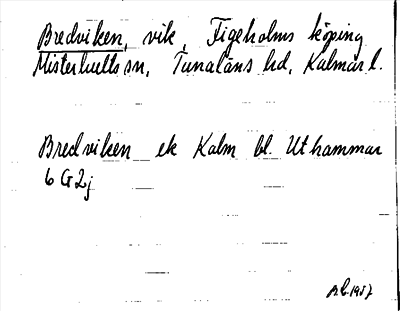 Bredviken, vik, Figeholms köping
Misterhults sn, Tunaläns hd, Kalmar l.
Bredviken ek Kalm bl. Uthammar
6 G 2j
1957